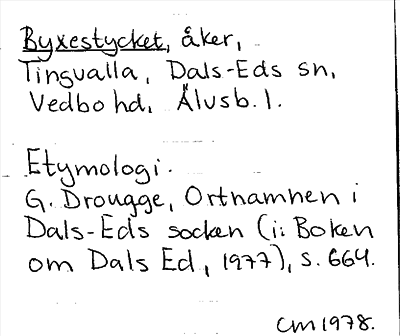 Byxestycket, åker,
Tingvalla, Dals-Eds sn,
Vedbo hd, Älvsb. l.
Etymologi.
G. Drougge, Ortnamnen i
Dals-Eds socken (i: Boken
om Dals Ed, 1977), s. 664.
CM 1978.